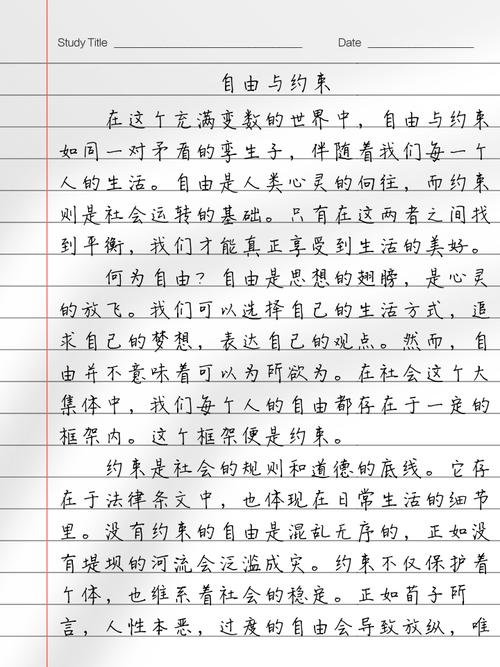 Study Title Date
自由与约束
在这个充满变数的世界中，自由与约束
如同一对矛盾的孪生子，伴随着我们每一个
人的生活。自由是人类心灵的向往，而约束
则是社会运转的基础。只有在这两者之间找
到平衡，我们才能真正享受到生活的美好。
何为自由？自由是思想的翅膀，是心灵
的放飞。我们可以选择自己的生活方式，追
求自己的梦想，表达自己的观点。然而，自
由并不意味着可以为所欲为。在社会这个大
集体中，我们每个人的自由都存在于一定的
框架内。这个框架便是约束。
约束是社会的规则和道德的底线。它存
在于法律条文中，也体现在日常生活的细节
里。没有约束的自由是混乱无序的，正如没
有堤坝的河流会泛滥成灾。约束不仅保护着
个体，也维系着社会的稳定。正如荀子所
言，人性本恶，过度的自由会导致放纵，唯